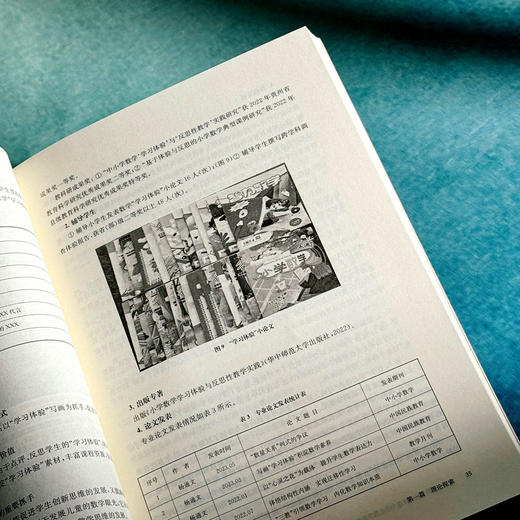 成果奖一等奖。
教科研成果奖：①“中小学数学‘学习体验’与‘反思性教学’实践研究”获2022年贵州省
教育科学研究优秀成果奖二等奖；②“基于体验与反思的小学数学典型课例研究”获2022年
县级教育科学研究优秀成果奖特等奖。
2. 辅导学生
① 辅导小学生发表数学“学习体验”小论文16人(次)。(图9)② 辅导学生撰写跨学科调
查体验报告：获省(部)级二等奖以上48人(次)。
小学数学
图9 “学习体验”小论文
3. 出版专著
出版《小学数学学习体验与反思性教学实践》(华中师范大学出版社，2022)。
4. 论文发表
专业论文发表情况如表3所示。
表3 专业论文发表统计表
序号 作者 发表时间 论文题目 发表期刊
1 杨通文 2023.05 “数量关系”列式的争议 中小学数学
杨通文 写画“学习体验”积淀数学素养 中国民族教育
杨通文 2023.01 以“心灵之歌”为载体 提升学生数学表达力 中国民族教育
杨通文 2022.07 体悟结构性内涵 实现迁移性学习 数学月刊
引领数学学习 内化数学知识本质 中小学数学
第一篇 理论探索 35
XX代言
的XXX
式
以“学习体验”写画为抓手
价值
点评、反思学生的“学习体验”
“学习体验”素材，丰富课程资源
重要抓手
促进学生创新思维的发展
发展儿童的数学眼光
数学思维的发展